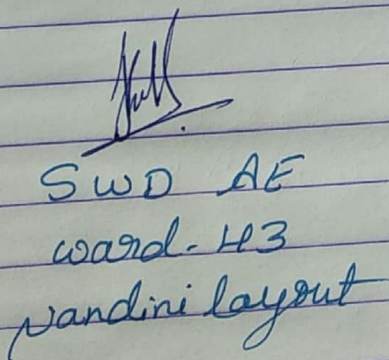 SWD AE
ward-43
Nandini layout